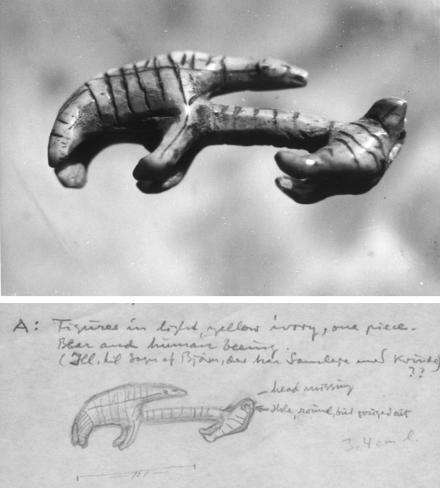 A: Figures in light, yellow ivory, one piece.
Bear and human beeing.
(Ill. til Sagn af Bjørn, der har Samleje med Kvinde)
??
head missing
Hole, round, but gouged out
3,4 cm l.